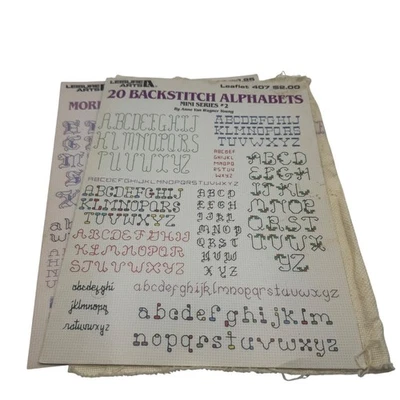 LEISURE ARTS
Leaflet 407 $2.00
20 BACKSTITCH ALPHABETS
MINI SERIES #2
By Anne Van Wagner Young
LEISURE ARTS
MOR
ABCDEFGHIJ
KLMNOPQRS
TUVWXYZ
ABCDEFGHIJ
KLMNOPQRS
TUVWXYZ
ABCDEF
GHIJKL
MNOP
QRSTUV
WXYZ
ABCDEFGHIJKLMNOPQRSTUVWXYZ
ABCDEFGHIJ
KLMNOPQRS
TUVWXYZ
ABCD
EFGH
IJKL
MNOP
QRST
UVW
XYZ
ABCD
EFGH
IJKL
MNO
PQRST
UVWX
YZ
ABCDEFGHIJ
KLMNOPQR
STUVWXYZ
abcdefghi
jklmnopq
rstuvwxyz
abcdefghijklmnopqrstuvwxyz
abcdefghijklm
nopqrstuvwxyz